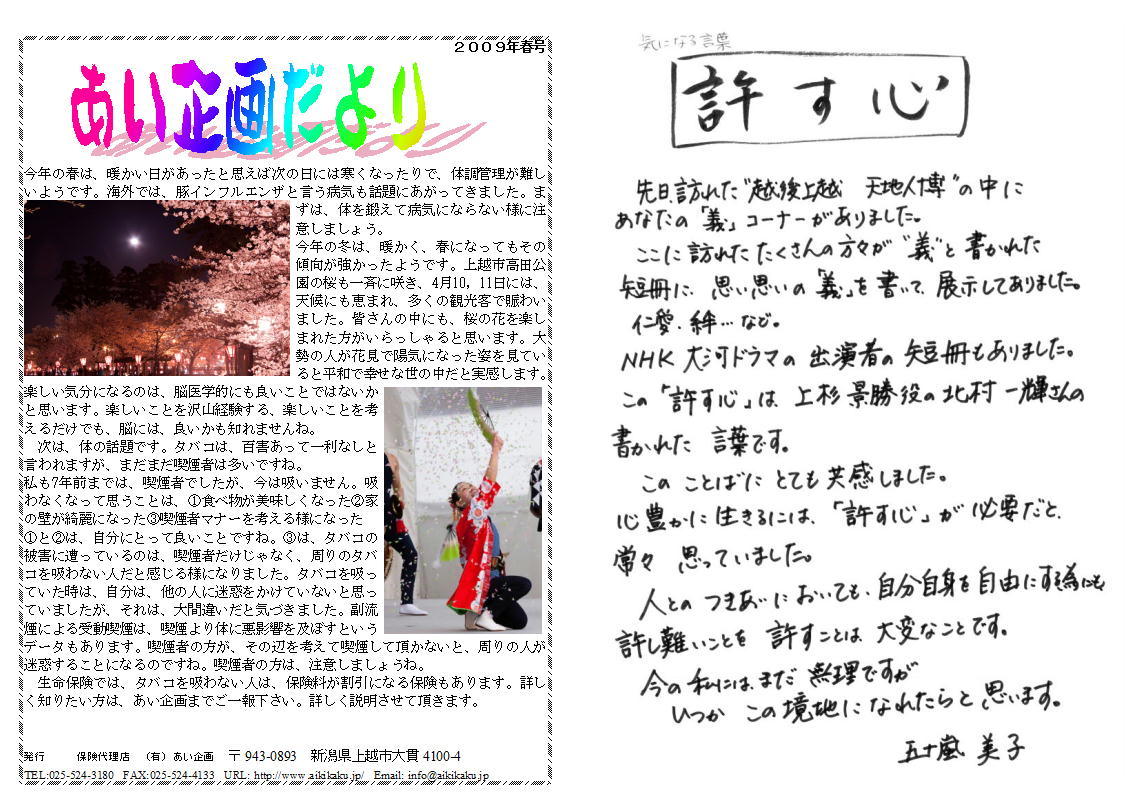 2009年春号
あい企画だより
今年の春は、暖かい日があったと思えば次の日には寒くなったりで、体調管理が難し
いようです。海外では、豚インフルエンザと言う病気も話題にあがってきました。ま
ずは、体を鍛えて病気にならない様に注
意しましょう。
今年の冬は、暖かく、春になってもその
傾向が強かったようです。上越市高田公
園の桜も一斉に咲き、4月10，11日には、
天候にも恵まれ、多くの観光客で賑わい
ました。皆さんの中にも、桜の花を楽し
まれた方がいらっしゃると思います。大
勢の人が花見で陽気になった姿を見てい
ると平和で幸せな世の中だと実感します。
楽しい気分になるのは、脳医学的にも良いことではないか
と思います。楽しいことを沢山経験する、楽しいことを考
えるだけでも、脳には、良いかも知れませんね。
次は、体の話題です。タバコは、百害あって一利なしと
言われますが、まだまだ喫煙者は多いですね。
私も7年前までは、喫煙者でしたが、今は吸いません。吸
わなくなって思うことは、①食べ物が美味しくなった②家
の壁が綺麗になった③喫煙者マナーを考える様になった
①と②は、自分にとって良いことですね。③は、タバコの
被害に遭っているのは、喫煙者だけじゃなく、周りのタバ
コを吸わない人だと感じる様になりました。タバコを吸っ
ていた時は、自分は、他の人に迷惑をかけていないと思っ
ていましたが、それは、大間違いだと気づきました。副流
煙による受動喫煙は、喫煙より体に悪影響を及ぼすという
データもあります。喫煙者の方が、その辺を考えて喫煙して頂かないと、周りの人が
迷惑することになるのですね。喫煙者の方は、注意しましょうね。
生命保険では、タバコを吸わない人は、保険料が割引になる保険もあります。詳し
く知りたい方は、あい企画までご一報下さい。詳しく説明させて頂きます。
発行 保険代理店 （有）あい企画 〒943-0893 新潟県上越市大貫4100-4
TEL:025-524-3180 FAX:025-524-4133 URL: http://www.aikikaku.jp/ Email: info@aikikaku.jp
気になる言葉
許す心
先日、訪れた"越後上越 天地人博"の中に
あなたの「義」コーナーがありました。
ここに訪れたたくさんの方々が"義"と書かれた
短冊に、思い思いの「義」を書いて、展示してありました。
仁愛、絆…など。
NHK大河ドラマの出演者の短冊もありました。
この「許す心」は、上杉景勝役の北村一輝さんの
書かれた言葉です。
このことばにとても共感しました。
心豊かに生きるには、「許す心」が必要だと、
常々思っていました。
人とのつきあいにおいても、自分自身を自由にする為にも
許し難いことを許すことは大変なことです。
今の私には、まだ無理ですが
いつかこの境地になれたらと思います。
五十嵐 美子